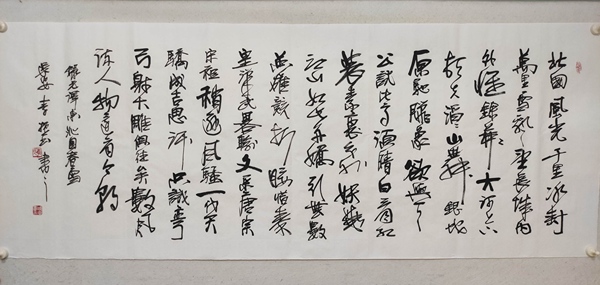 北国風光千里冰封
萬里雪飘望長城内
外惟餘莽莽大河上下
顿失滔滔山舞銀蛇
原馳蠟象欲与天
公試比高須晴日看红
装素裹分外妖嬈
江山如此多嬌引無数
英雄競折腰惜秦
皇漢武略輸文采唐宗
宋祖稍逊風騷一代天
驕成吉思汗只識彎
弓射大雕俱往矣数風
流人物還看今朝
錄毛澤東沁园春雪
李 書